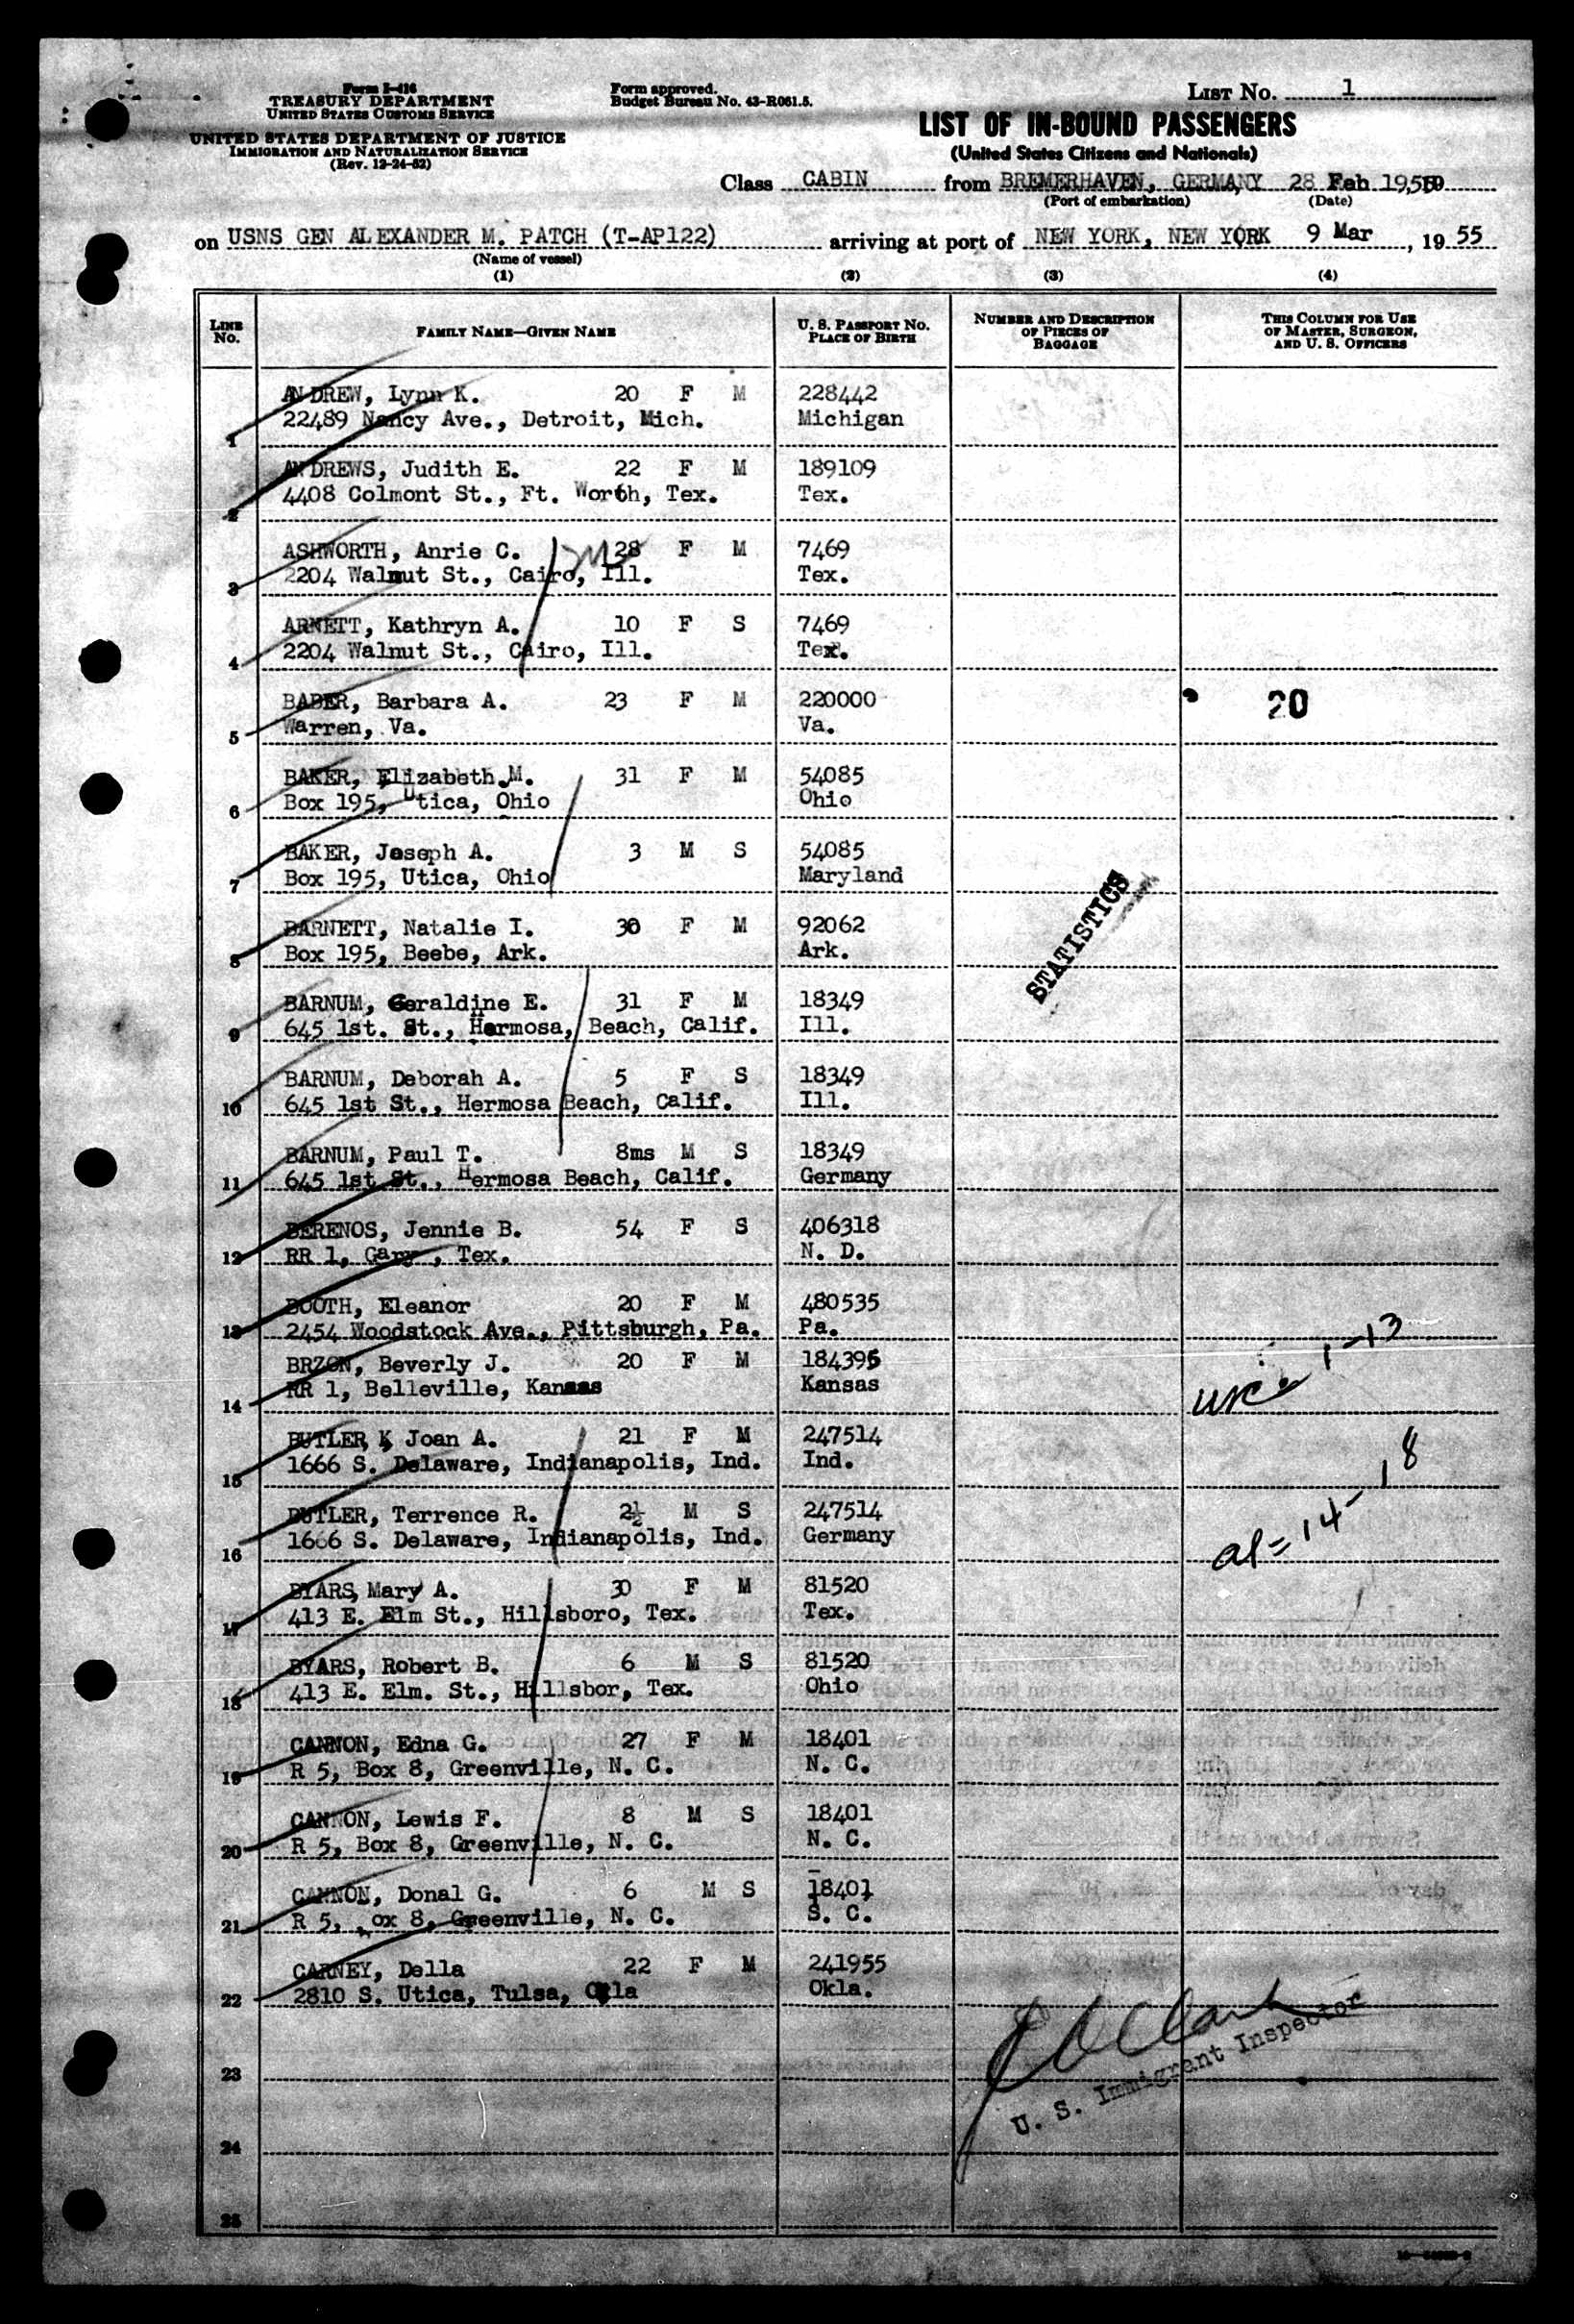 Form I-416
TREASURY DEPARTMENT
UNITED STATES CUSTOMS SERVICE
UNITED STATES DEPARTMENT OF JUSTICE
IMMIGRATION AND NATURALIZATION SERVICE
(Rev. 12-24-52)
Form approved.
Budget Bureau No. 43-R061.5.
LIST NO. 1
LIST OF IN-BOUND PASSENGERS
(United States Citizens and Nationals)
Class CABIN from BREMERHAVEN, GERMANY 28 Feb 1955
(Port of embarkation) (Date)
on USNS GEN ALEXANDER M. PATCH (T-AP122) arriving at port of NEW YORK, NEW YORK 9 Mar, 1955
(Name of vessel)
(1) (2) (3) (4)
LINE NO. FAMILY NAME—GIVEN NAME U. S. PASSPORT NO. PLACE OF BIRTH NUMBER AND DESCRIPTION OF PIECES OF BAGGAGE THIS COLUMN FOR USE OF MASTER, SURGEON, AND U. S. OFFICERS
ANDREW, Lynn K. 20 F M 228442
1 22489 Nancy Ave., Detroit, Mich. Michigan
ANDREWS, Judith E. 22 F M 189109
2 4408 Colmont St., Ft. Worth, Tex. Tex.
ASHWORTH, Anrie C. 28 F M 7469
3 2204 Walnut St., Cairo, Ill. Tex.
ARNETT, Kathryn A. 10 F S 7469
4 2204 Walnut St., Cairo, Ill. Tex.
BABER, Barbara A. 23 F M 220000 20
5 Warren, Va. Va.
BAKER, Elizabeth M. 31 F M 54085
6 Box 195, Utica, Ohio Ohio
BAKER, Joseph A. 3 M S 54085
7 Box 195, Utica, Ohio Maryland
STATISTICS
BARNETT, Natalie I. 30 F M 92062
8 Box 195, Beebe, Ark. Ark.
BARNUM, Geraldine E. 31 F M 18349
9 645 1st. St., Hermosa, Beach, Calif. Ill.
BARNUM, Deborah A. 5 F S 18349
10 645 1st St., Hermosa Beach, Calif. Ill.
BARNUM, Paul T. 8ms M S 18349
11 645 1st St., Hermosa Beach, Calif. Germany
BERENOS, Jennie B. 54 F S 406318
12 RR 1, Gary , Tex. N. D.
BOOTH, Eleanor 20 F M 480535
13 2454 Woodstock Ave., Pittsburgh, Pa. Pa.
BRZON, Beverly J. 20 F M 184395
14 RR 1, Belleville, Kansas Kansas
usc = 1-13
BUTLER, Joan A. 21 F M 247514
15 1666 S. Delaware, Indianapolis, Ind. Ind.
BUTLER, Terrence R. 2½ M S 247514
16 1666 S. Delaware, Indianapolis, Ind. Germany
al = 14-18
BYARS, Mary A. 30 F M 81520
17 413 E. Elm St., Hillsboro, Tex. Tex.
BYARS, Robert B. 6 M S 81520
18 413 E. Elm. St., Hillsbor, Tex. Ohio
CANNON, Edna G. 27 F M 18401
19 R 5, Box 8, Greenville, N. C. N. C.
CANNON, Lewis F. 8 M S 18401
20 R 5, Box 8, Greenville, N. C. N. C.
CANNON, Donal G. 6 M S 18401
21 R 5, ox 8, Greenville, N. C. S. C.
CARNEY, Della 22 F M 241955
22 2810 S. Utica, Tulsa, Okla Okla.
23
U. S. Immigrant Inspector
24
25